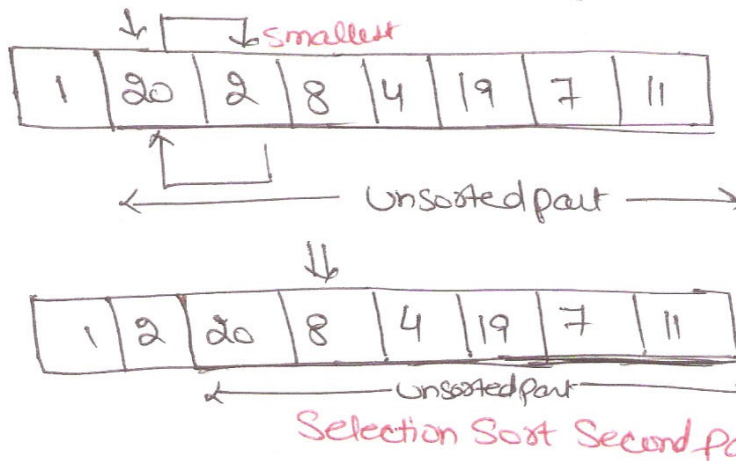 smallest
1 20 2 8 4 19 7 11
Unsorted part
1 2 20 8 4 19 7 11
Unsorted part
Selection Sort Second Pa